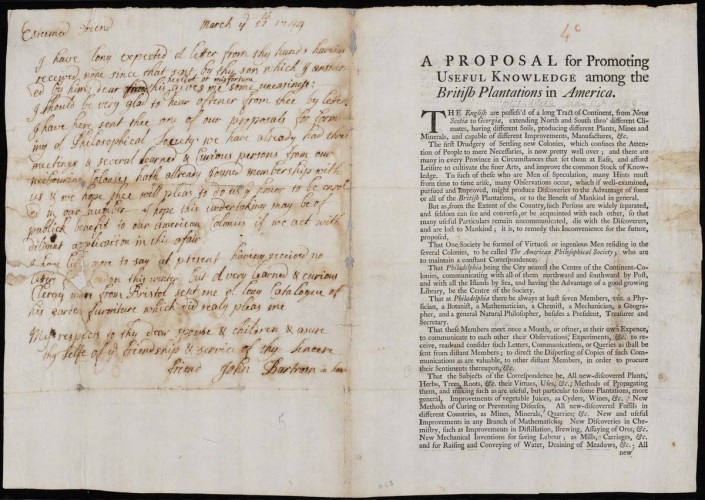 Esteemed friend March ye 27 1744
I have long expected a letter from thy hand haveing
received none since that sent by thy son which I answer
ed by him; dear this gives me some uneasiness:
neglect or misfortune
I should be very glad to hear oftener from thee by letter
I have here sent thee one of our proposals for form
ing of Philosophical Society we have already had three
meetings & several learned & curious persons from our
neibouring colonies hath already joyned membership with
us & we hope thee will pleas to do us ye honor to be enrol
ed in our number I hope this undertaking may be of
publick benefit to our american colonies if we act with
diligent application in this affair
to say at present haveing received no
this winter but a very learned & curious
Clergy man from Bristol sent me a long Catalogue of
his garden furniture which did realy pleas me
My respects to thy dear spouse & children & asure
thy self of ye friendship & service of thy sincere
friend John Bartram
4c
A PROPOSAL for Promoting
USEFUL KNOWLEDGE among the
British Plantations in America.
THE English are possess'd of a long Tract of Continent, from Nova
Scotia to Georgia, extending North and South thro' different Cli-
mates, having different Soils, producing different Plants, Mines and
Minerals, and capable of different Improvements, Manufactures, &c.
The first Drudgery of Settling new Colonies, which confines the Atten-
tion of People to mere Necessaries, is now pretty well over; and there are
many in every Province in Circumstances that set them at Ease, and afford
Leisure to cultivate the finer Arts, and improve the common Stock of Know-
ledge. To such of these who are Men of Speculation, many Hints must
from time to time arise, many Observations occur, which if well-examined,
pursued and improved, might produce Discoveries to the Advantage of some
or all of the British Plantations, or to the Benefit of Mankind in general.
But as, from the Extent of the Country, such Persons are widely separated,
and seldom can see and converse, or be acquainted with each other, so that
many useful Particulars remain uncommunicated, die with the Discoverers,
and are lost to Mankind; it is, to remedy this Inconvenience for the future,
proposed,
That One Society be formed of Virtuosi or ingenious Men residing in the
several Colonies, to be called The American Philosophical Society; who are
to maintain a constant Correspondence.
That Philadelphia being the City nearest the Centre of the Continent-Colo-
nies, communicating with all of them northward and southward by Post,
and with all the Islands by Sea, and having the Advantage of a good growing
Library, be the Centre of the Society.
That at Philadelphia there be always at least seven Members, viz. a Phy-
sician, a Botanist, a Mathematician, a Chemist, a Mechanician, a Geogra-
pher, and a general Natural Philosopher, besides a President, Treasurer and
Secretary.
That these Members meet once a Month, or oftner, at their own Expence,
to communicate to each other their Observations, Experiments, &c. to re-
ceive, read and consider such Letters, Communications, or Queries as shall be
sent from distant Members; to direct the Dispersing of Copies of such Com-
munications as are valuable, to other distant Members, in order to procure
their Sentiments thereupon, &c.
That the Subjects of the Correspondence be, All new-discovered Plants,
Herbs, Trees, Roots, &c. their Virtues, Uses, &c.; Methods of Propagating
them, and making such as are useful, but particular to some Plantations, more
general, Improvements of vegetable Juices, as Cyders, Wines, &c. New
Methods of Curing or Preventing Diseases. All new-discovered Fossils in
different Countries, as Mines, Minerals, Quarries; &c. New and useful
Improvements in any Branch of Mathematicks; New Discoveries in Che-
mistry, such as Improvements in Distillation, Brewing, Assaying of Ores; &c.
New Mechanical Inventions for saving Labour; as Mills, Carriages, &c.
and for Raising and Conveying of Water, Draining of Meadows, &c.; All
new